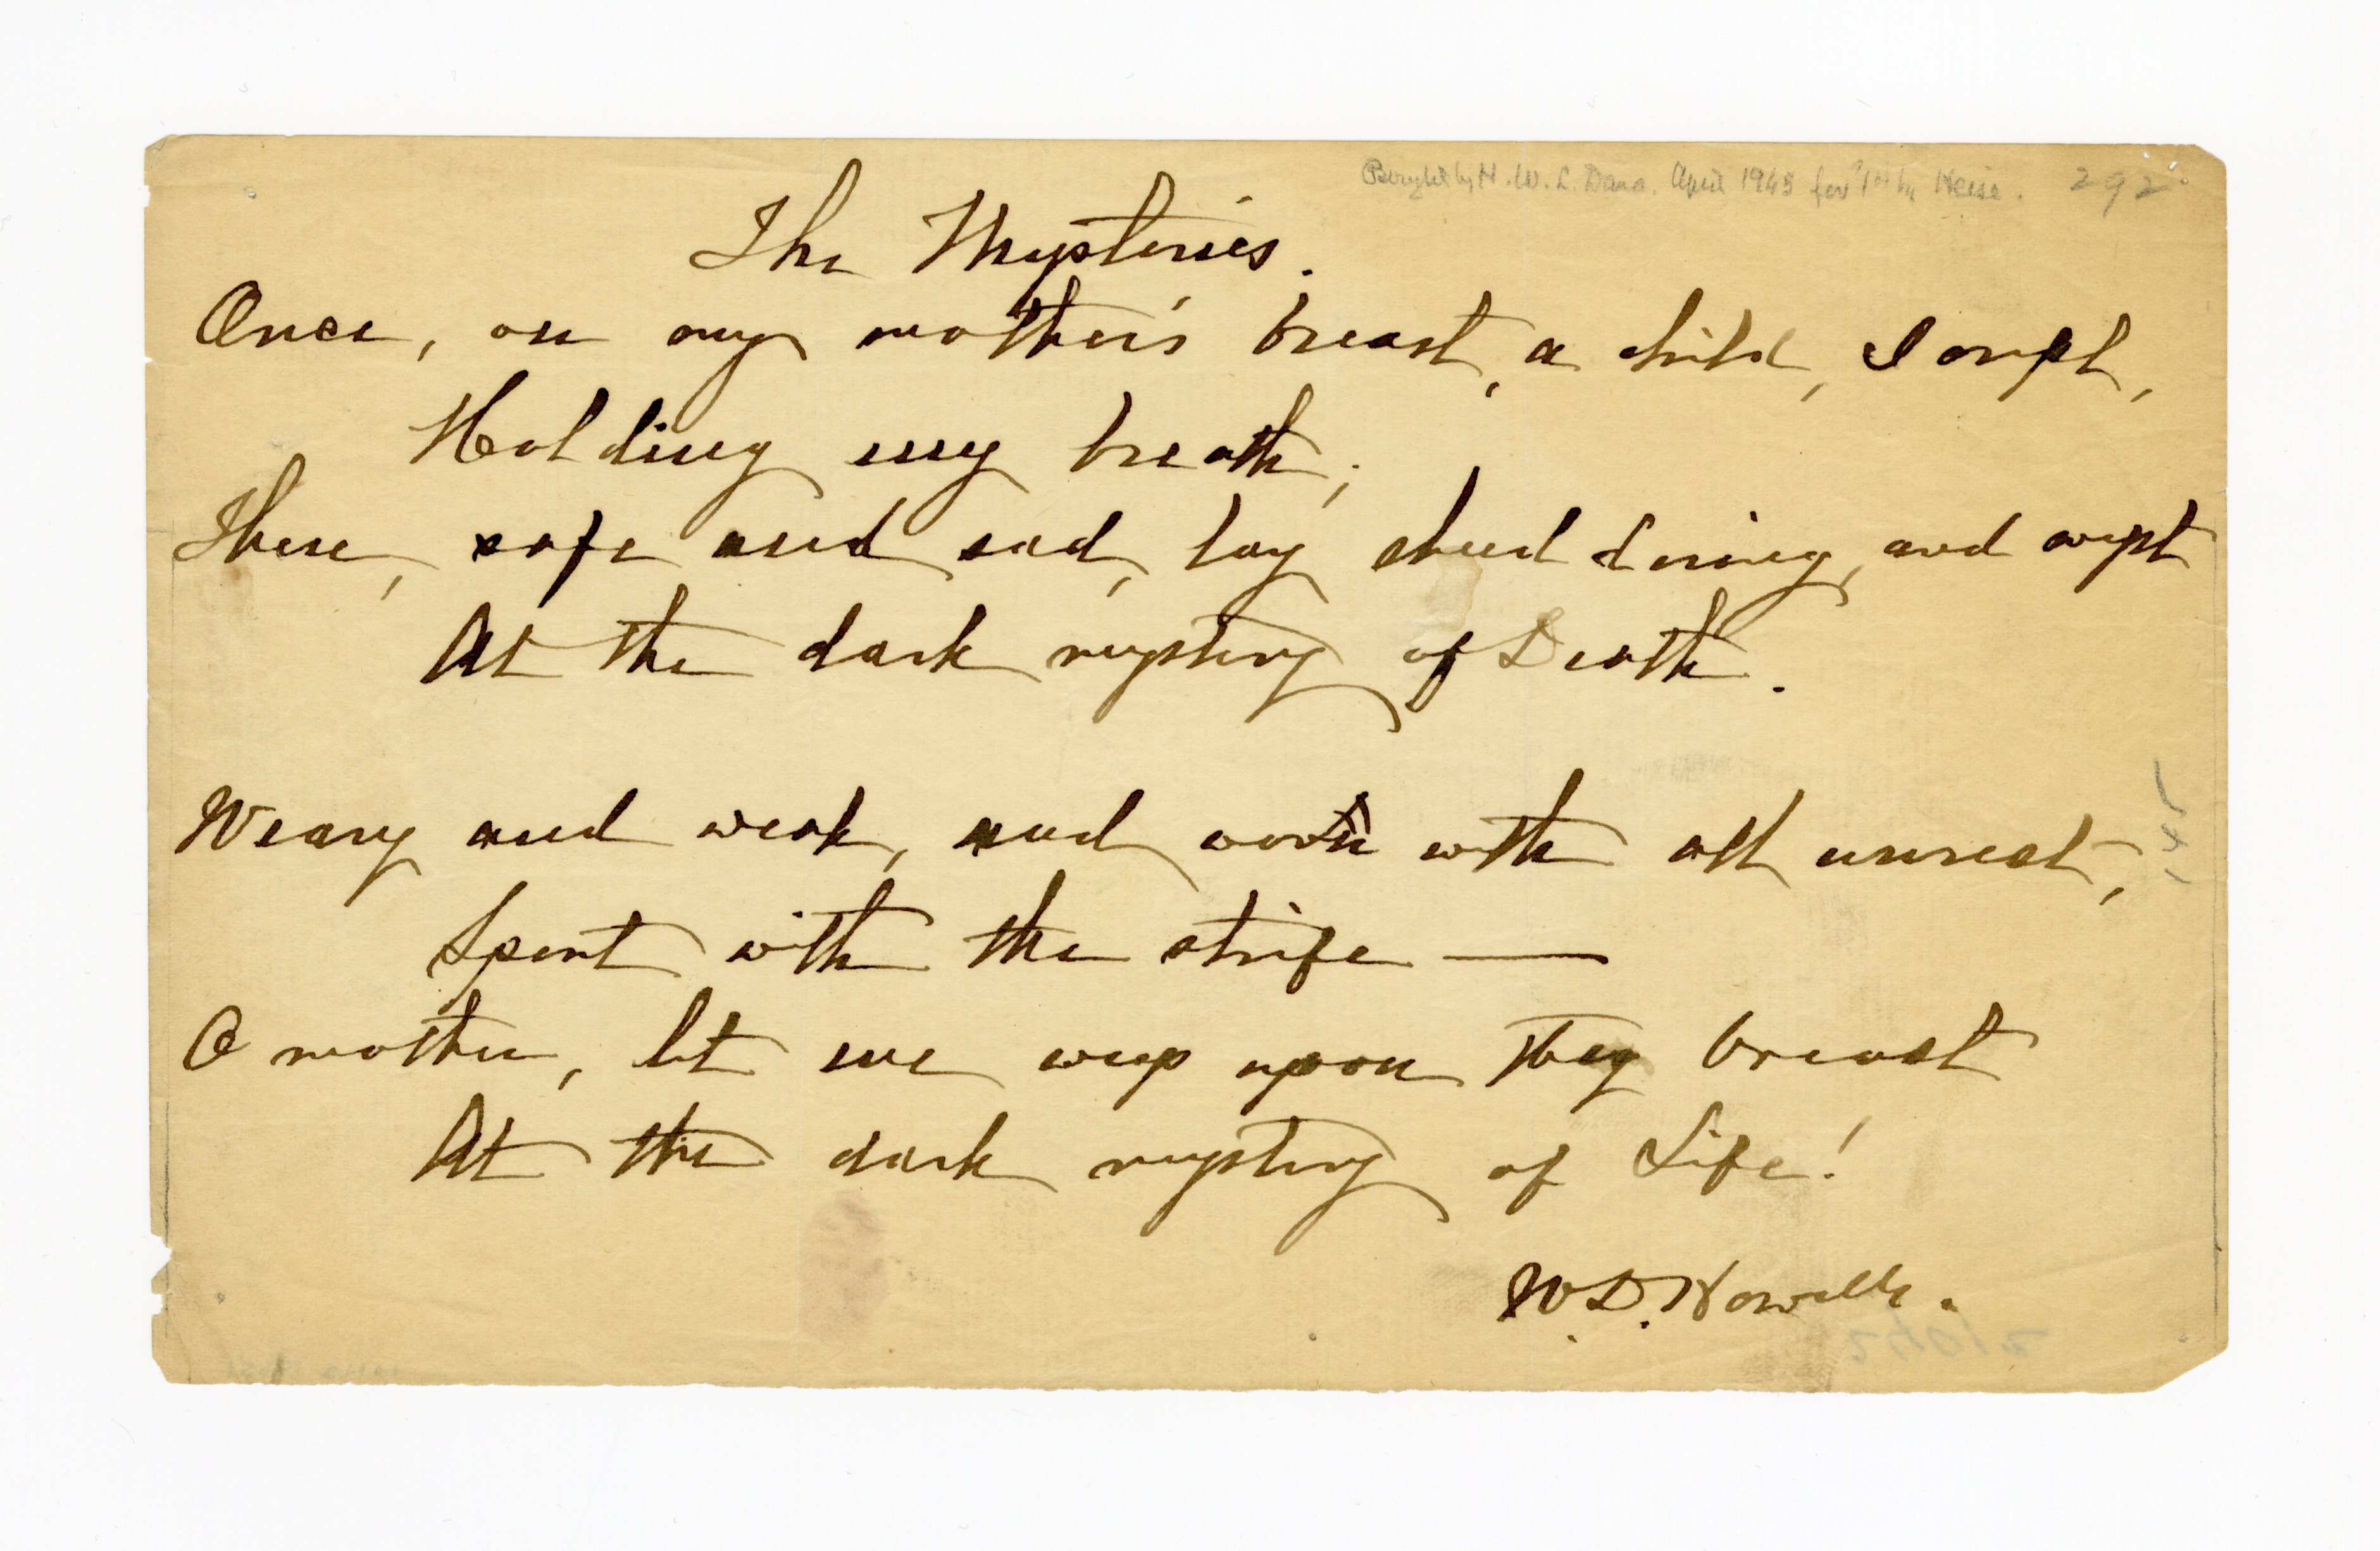 Bought by H. W. L. Dana. April 1945 for 292
The Mysteries.
Once, on my mother's breast, a child, I crept,
Holding my breath;
There, safe and sad, lay shuddering, and wept
At the dark mystery of Death.
Weary and weak, and worn with all unrest,
Spent with the strife —
O mother, let me weep upon thy breast
At the dark mystery of Life!
W. D. Howells.